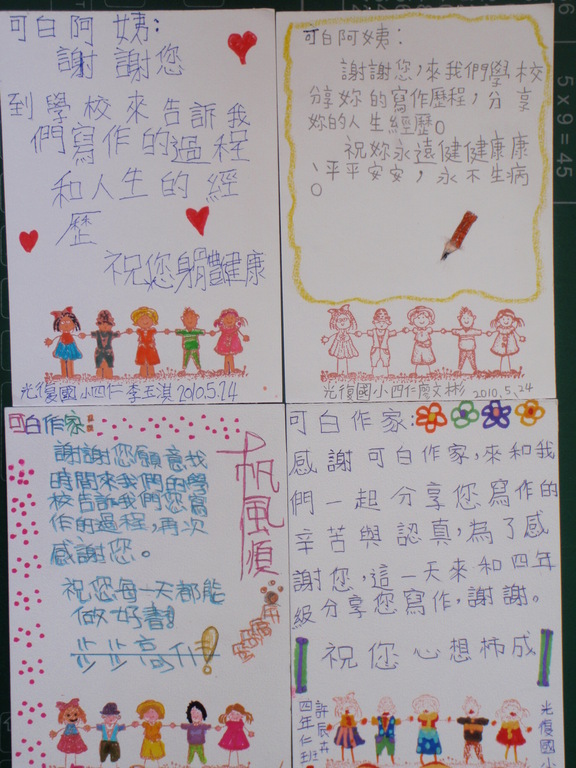 可白阿姨:
謝謝您
到學校來告訴我
們寫作的過程
和人生的經
歷
祝您身體健康
光復國小四仁李玉淇2010.5.24
可白阿姨:
謝謝您,來我們學校
分享妳的寫作歷程,分享
妳的人生經歷。
祝妳永遠健健康康
、平平安安,永不生病
。
光復國小四仁廖文彬 2010.5.24
5 x 9 = 45
可白作家:
謝謝您願意找
時間來我們的學
校告訴我們您寫
作的過程,再次
感謝您。
祝您每一天都能
做好書!
步步高升!
一帆風順
可白作家:
感謝可白作家,來和我
們一起分享您寫作的
辛苦與認真,為了感
謝您,這一天來和四年
級分享您寫作,謝謝。
祝您心想柿成
四年仁班
光復國小